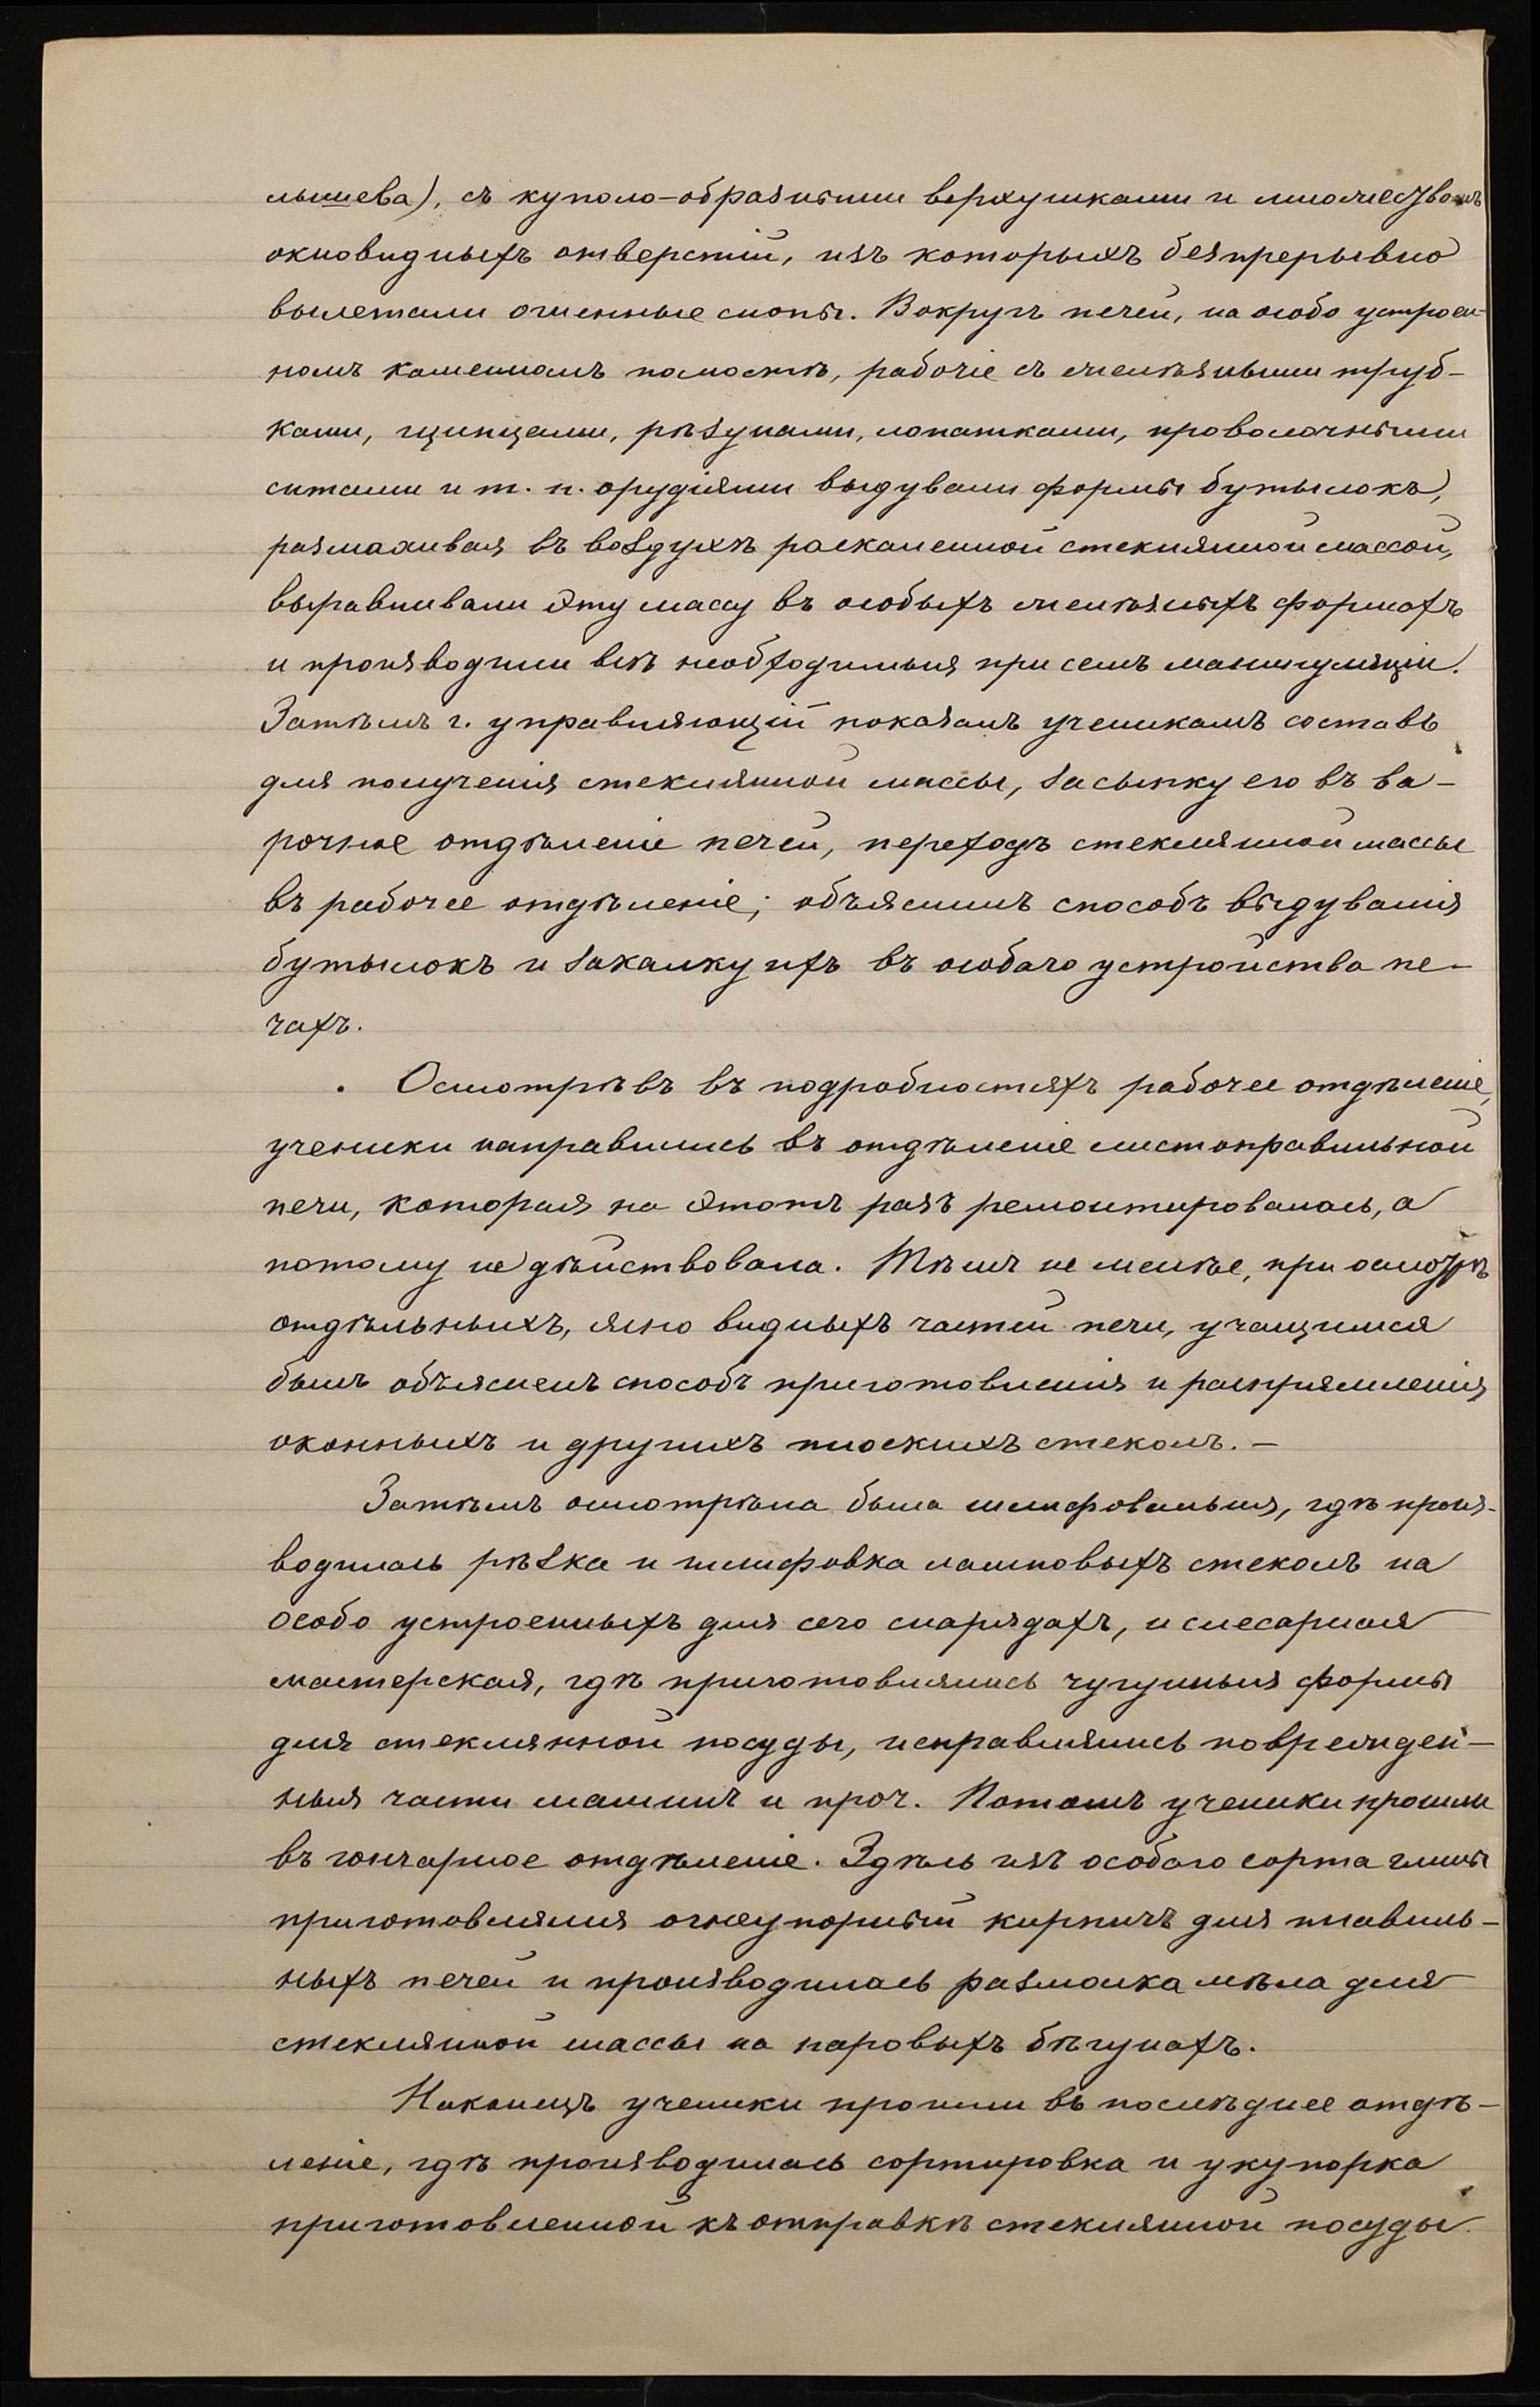 лышева), съ куполо-образными верхушками и множествомъ
окновидныхъ отверстій, изъ которыхъ безпрерывно
вылетали огненные снопы. Вокругъ печей, на особо устроен-
номъ каменномъ помостѣ, рабочіе съ желѣзными труб-
ками, щипцами, рѣзунами, лопатками, проволочными
ситами и т. п. орудіями выдували формы бутылокъ,
размахивая въ воздухѣ раскаленной стеклянной массой,
выравнивали эту массу въ особыхъ желѣзныхъ формахъ
и производили всѣ необходимыя при семъ манипуляціи.
Затѣмъ г. управляющій показалъ ученикамъ составъ
для полученія стеклянной массы, засыпку его въ ва-
рочное отдѣленіе печей, переходъ стеклянной массы
въ рабочее отдѣленіе; объяснилъ способъ выдуванія
бутылокъ и закалку ихъ въ особаго устройства пе-
чахъ.
Осмотрѣвъ въ подробностяхъ рабочее отдѣленіе,
ученики направились въ отдѣленіе листоправильной
печи, которая на этотъ разъ ремонтировалась, а
потому не дѣйствовала. Тѣмъ не менѣе, при осмотрѣ
отдѣльныхъ, ясно видныхъ частей печи, учащимся
былъ объясненъ способъ приготовленія и распрямленія
оконныхъ и другихъ плоскихъ стеколъ. –
Затѣмъ осмотрѣна была шлифовальня, гдѣ произ-
водилась рѣзка и шлифовка ламповыхъ стеколъ на
особо устроенныхъ для сего снарядахъ, и слесарная
мастерская, гдѣ приготовлялись чугунныя формы
для стеклянной посуды, исправлялись поврежден-
ныя части машинъ и проч. Потомъ ученики прошли
въ гончарное отдѣленіе. Здѣсь изъ особаго сорта глины
приготовлялся огнеупорный кирпичъ для плавиль-
ныхъ печей и производилась размолка мѣла для
стеклянной массы на паровыхъ бѣгунахъ.
Наконецъ ученики прошли въ послѣднее отдѣ-
леніе, гдѣ производилась сортировка и укупорка
приготовленной къ отправкѣ стеклянной посуды.